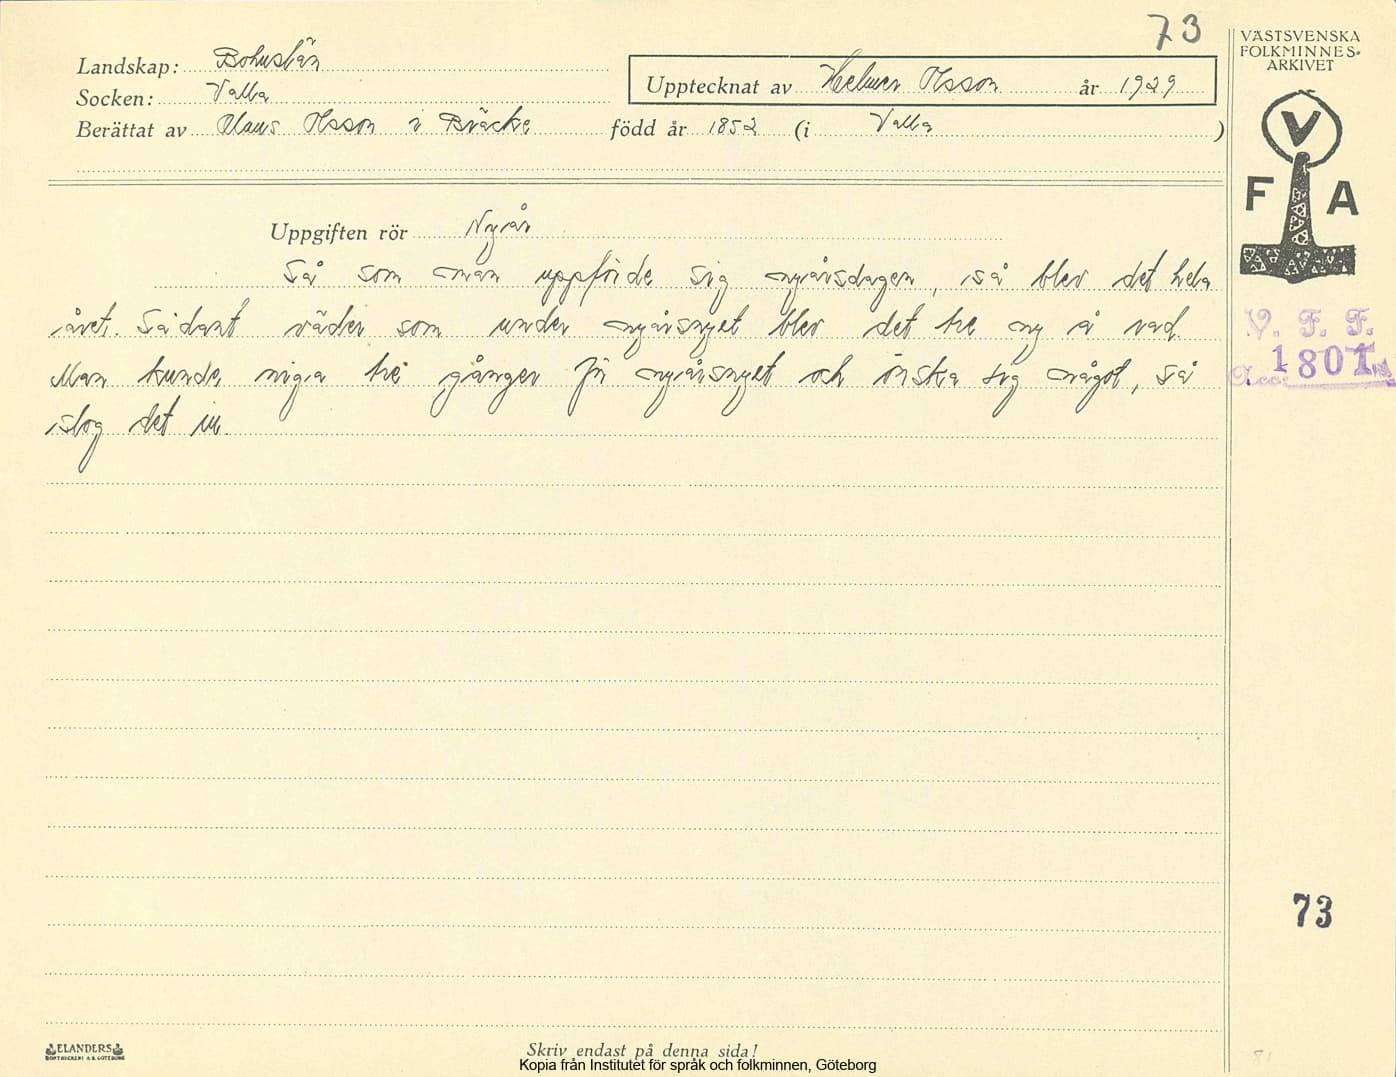 73
VÄSTSVENSKA
FOLKMINNES-
ARKIVET
Landskap: Bohuslän
Socken: Valla
Upptecknat av Helmer Olsson år 1929
Berättat av Olaus Olsson i Bräcke född år 1852 (i Valla )
V
F A
Uppgiften rör Nyår
Så som man uppförde sig nyårsdagen, så blev det hela
året. Sådant väder som under nyårsnyet blev det tre ny å rad.
Man kunde niga tre gånger för nyårsnyet och önska sig något, så
slog det in.
V. F. F.
Acc. 1801
73
ELANDERS
BOKTRYCKERI A.B. GÖTEBORG
Skriv endast på denna sida!
Kopia från Institutet för språk och folkminnen, Göteborg